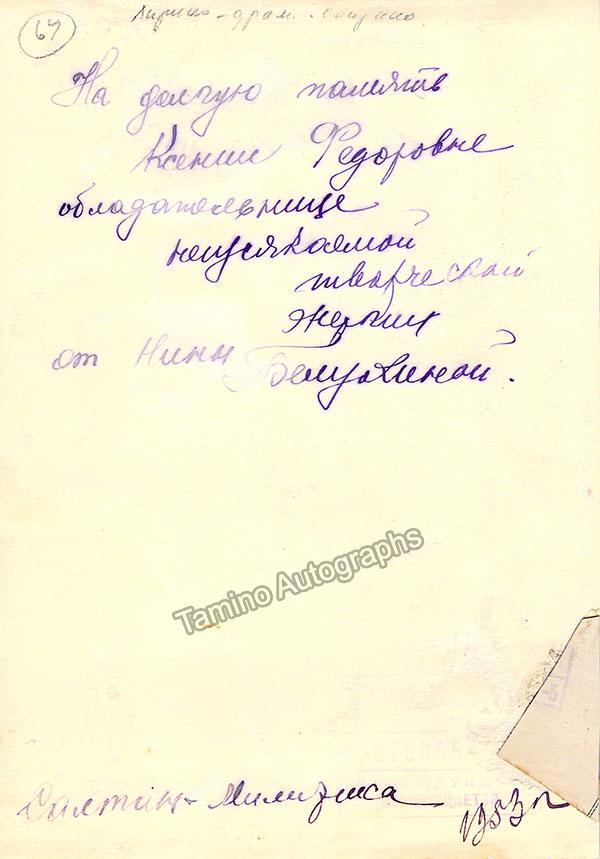 67
Лирико-драм. сопрано.
На долгую память
Ксении Федоровне
обладательнице
неиссякаемой
творческой
энергии
от Нины
Tamino Autographs
Милитриса
1953 г